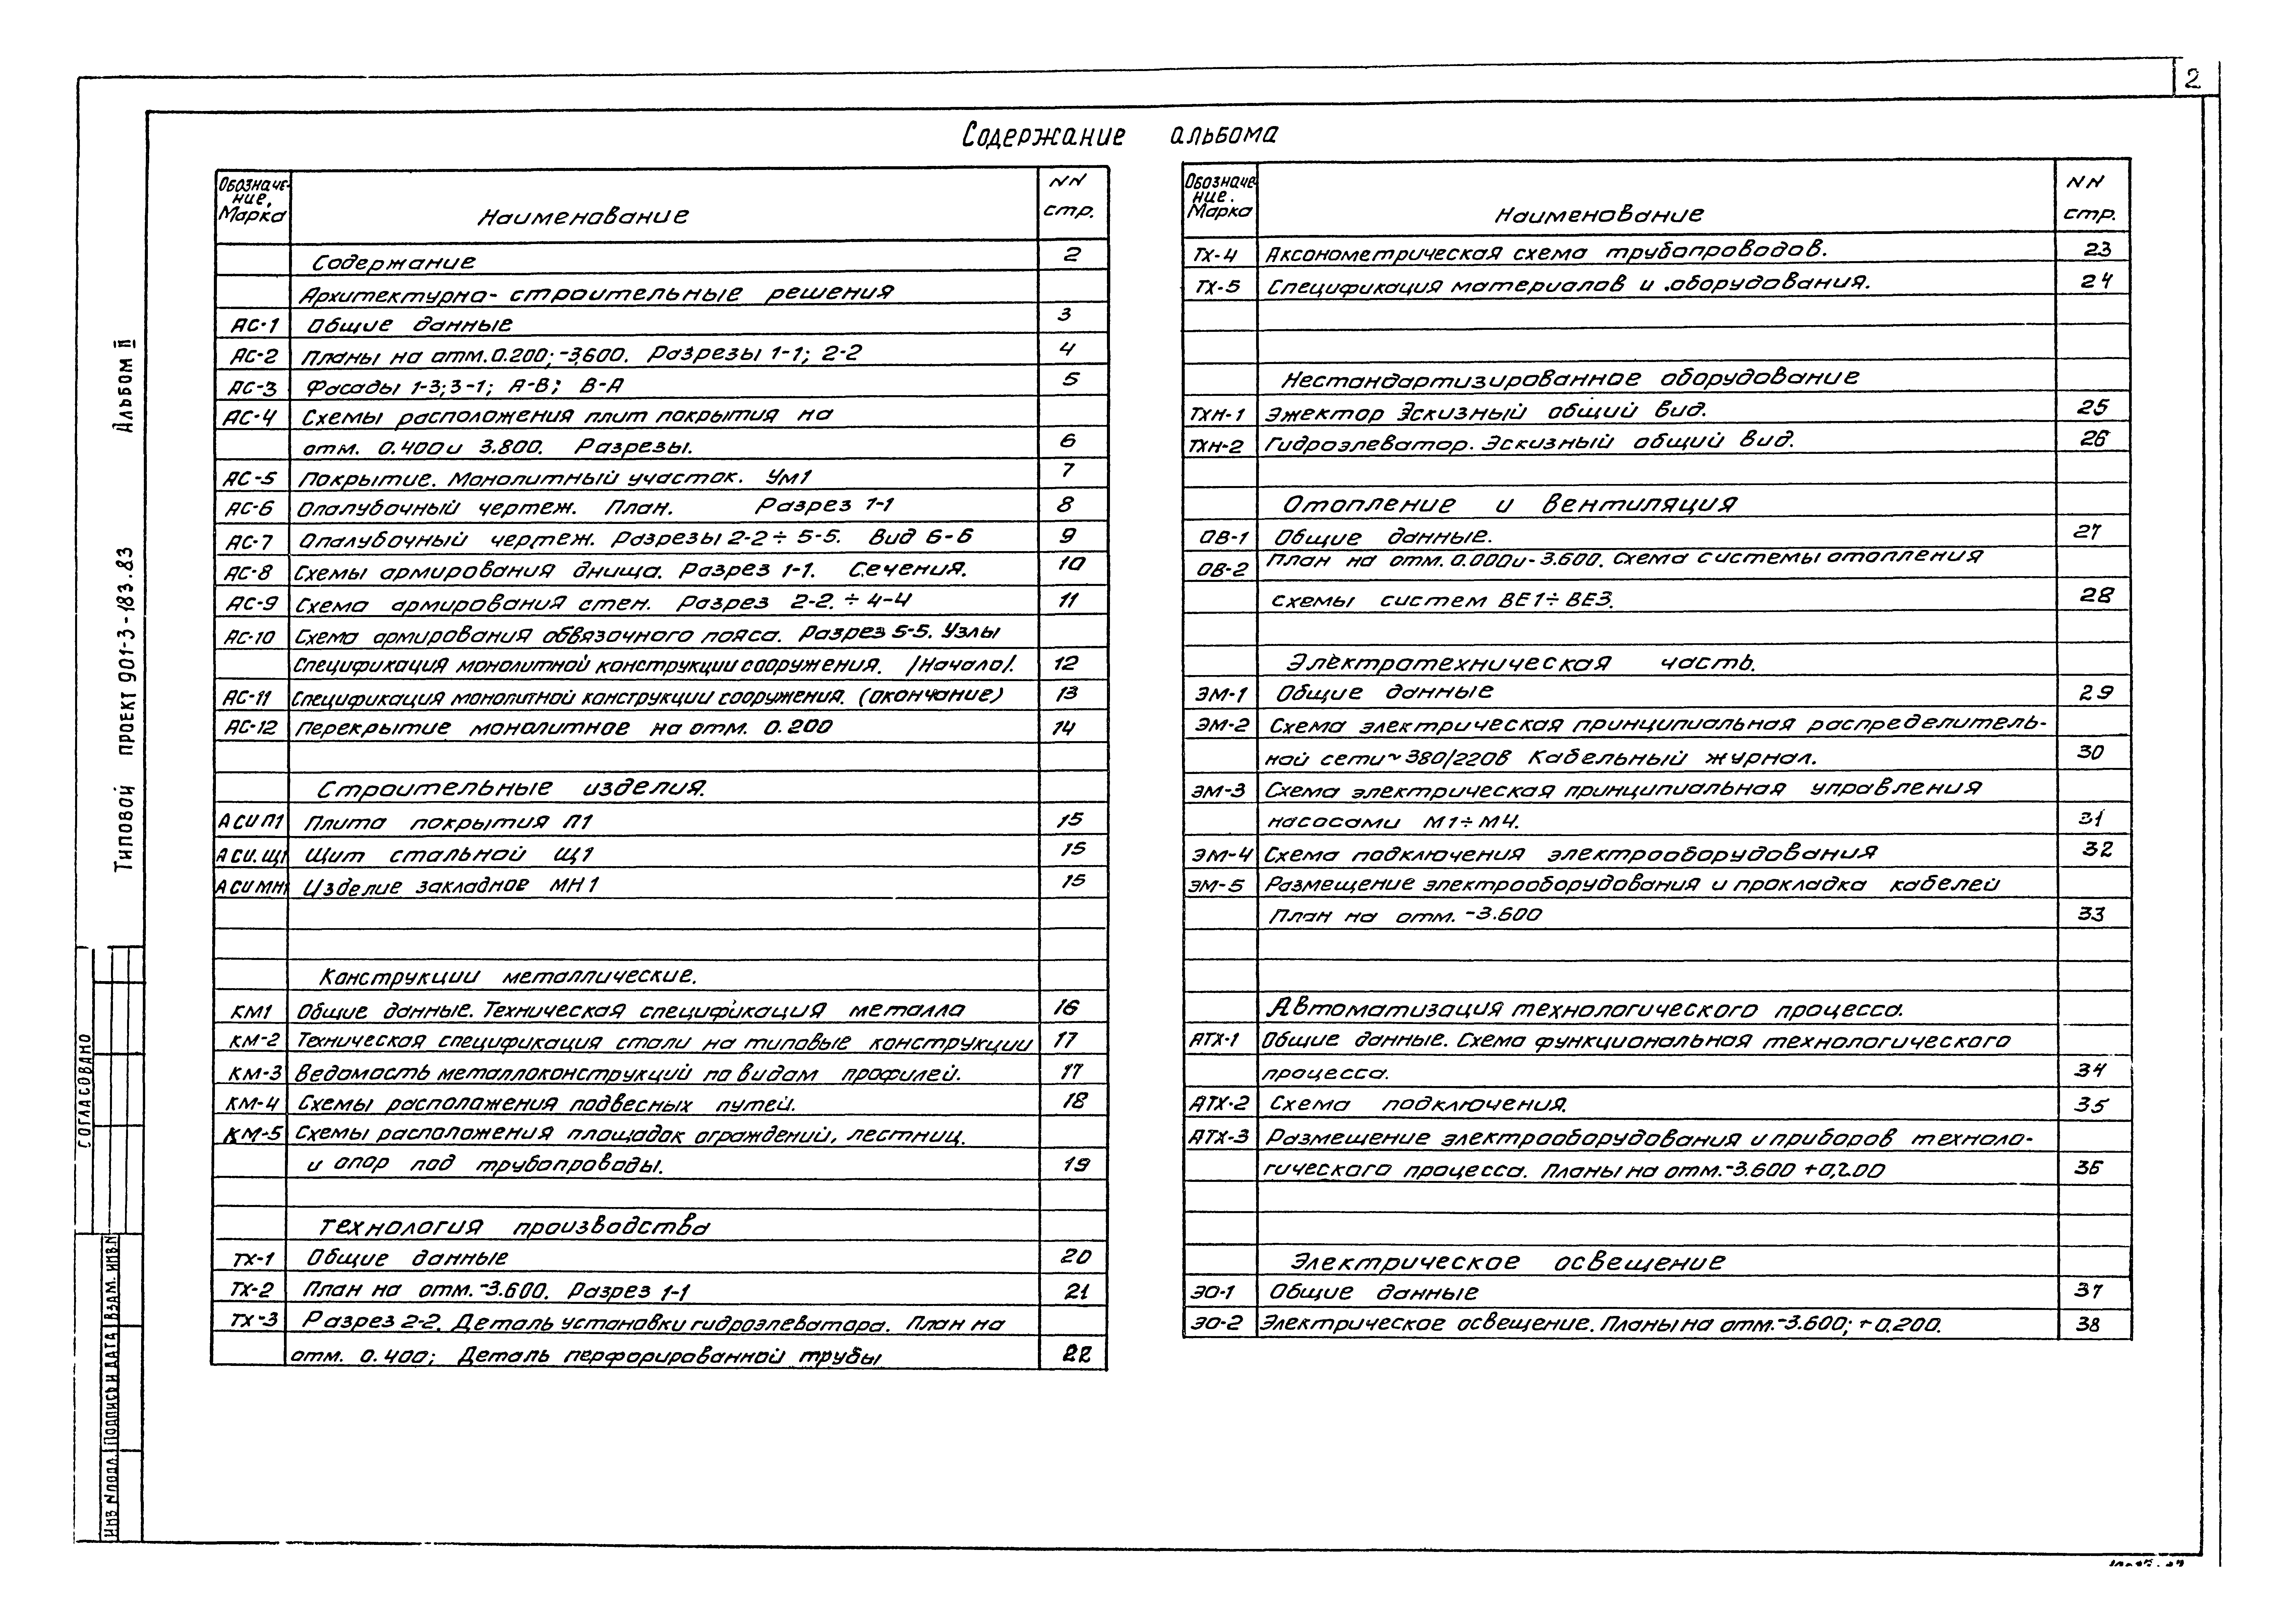 2
Содержание альбома
Обозначе-
ние,
Марка
Наименование
NN
стр.
Содержание 2
Архитектурно-строительные решения
АС-1 Общие данные 3
АС-2 Планы на отм.0.200; -3,600. Разрезы 1-1; 2-2 4
АС-3 Фасады 1-3; 3-1; А-В; В-А 5
АС-4 Схемы расположения плит покрытия на
отм. 0.400 и 3.800. Разрезы. 6
АС-5 Покрытие. Монолитный участок. Ум1 7
АС-6 Опалубочный чертеж. План. Разрез 1-1 8
АС-7 Опалубочный чертеж. Разрезы 2-2÷5-5. Вид 6-6 9
АС-8 Схемы армирования днища. Разрез 1-1. Сечения. 10
АС-9 Схема армирования стен. Разрез 2-2.÷4-4 11
АС-10 Схема армирования обвязочного пояса. Разрез 5-5. Узлы
Спецификация монолитной конструкции сооружения. /Начало/. 12
АС-11 Спецификация монолитной конструкции сооружения. (окончание) 13
АС-12 Перекрытие монолитное на отм. 0.200 14
Строительные изделия.
АСИ П1 Плита покрытия П1 15
АСИ.Щ1 Щит стальной Щ1 15
АСИ МН1 Изделие закладное МН1 15
Конструкции металлические.
КМ1 Общие данные. Техническая спецификация металла 16
КМ-2 Техническая спецификация стали на типовые конструкции 17
КМ-3 Ведомость металлоконструкций по видам профилей. 17
КМ-4 Схемы расположения подвесных путей. 18
КМ-5 Схемы расположения площадок ограждений, лестниц.
и опор под трубопроводы. 19
Технология производства
ТХ-1 Общие данные 20
ТХ-2 План на отм.-3.600. Разрез 1-1 21
ТХ-3 Разрез 2-2. Деталь установки гидроэлеватора. План на
отм. 0.400; Деталь перфорированной трубы 22
Обозначе
ние.
Марка
Наименование
NN
стр.
ТХ-4 Аксонометрическая схема трубопроводов. 23
ТХ-5 Спецификация материалов и оборудования. 24
Нестандартизированное оборудование
ТХН-1 Эжектор Эскизный общий вид. 25
ТХН-2 Гидроэлеватор. Эскизный общий вид. 26
Отопление и вентиляция
ОВ-1 Общие данные. 27
ОВ-2 План на отм. 0.000 и -3.600. Схема системы отопления
схемы систем ВЕ1÷ВЕ3. 28
Электротехническая часть.
ЭМ-1 Общие данные 29
ЭМ-2 Схема электрическая принципиальная распределитель-
ной сети ~380/220В Кабельный журнал. 30
ЭМ-3 Схема электрическая принципиальная управления
насосами М1÷М4. 31
ЭМ-4 Схема подключения электрооборудования 32
ЭМ-5 Размещение электрооборудования и прокладка кабелей
План на отм. -3.600 33
Автоматизация технологического процесса.
АТХ-1 Общие данные. Схема функциональная технологического
процесса. 34
АТХ-2 Схема подключения. 35
АТХ-3 Размещение электрооборудования и приборов техноло-
гического процесса. Планы на отм.-3.600 +0,200 36
Электрическое освещение
ЭО-1 Общие данные 37
ЭО-2 Электрическое освещение. Планы на отм.-3.600; +0.200. 38
Типовой проект 901-3-183.83 Альбом II
Согласовано
Инв N подл. Подпись и дата Взам. инв. N